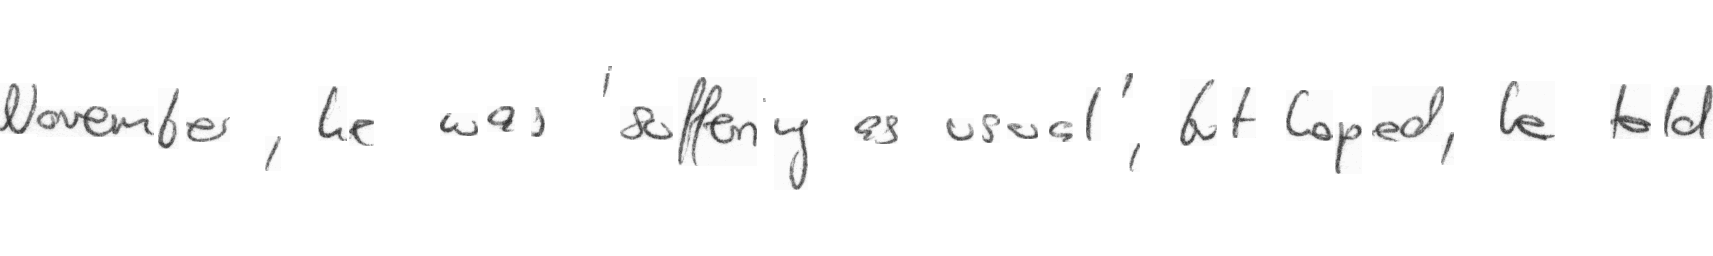 November, he was 'suffering as usual', but hoped, he told